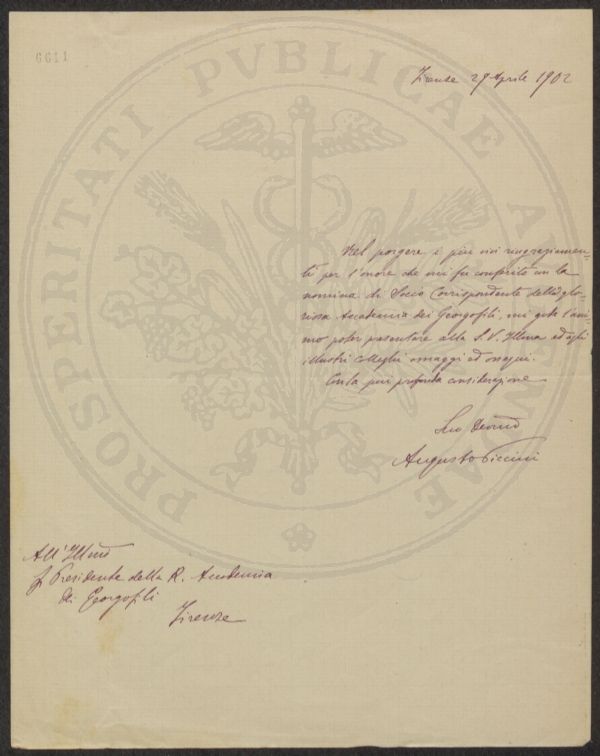 6611
PROSPERITATI PUBLICAE AUGENDAE
Firenze 29 Aprile 1902
Nel porgere i più vivi ringraziamen=
ti per l'onore che mi fu conferito con la
nomina di Socio Corrispondente dell'a glo-
riosa Accademia dei Georgofili, mi gode l'ani-
mo poter presentare alla S. V. Illma ed agli
illustri Colleghi omaggi ed ossequi.
Colla più profonda considerazione
Suo Devmo
Augusto Piccini
All' Illmo
Presidente della R. Accademia
dei Georgofili
Firenze